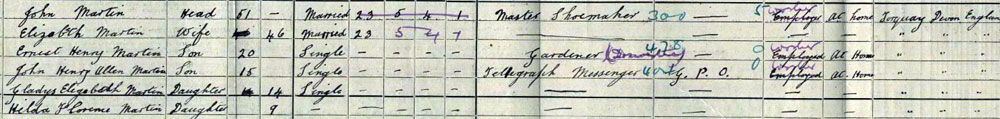 John Martin Head 51 — Married 23 5 4 1 Master Shoemaker 300 — 5 Employed worker At home Torquay Devon England
Elizabeth Martin Wife 46 Married 23 5 4 1 — — —
Ernest Henry Martin Son 20 Single — — — — Gardener (Domestic) 478 — 0 Employed worker At Home " " "
John Henry Allen Martin Son 15 Single — — — — Telegraph Messenger G. P. O. 0 Employed worker At Home " " "
Gladys Elizabeth Martin Daughter 14 Single — — — — — — — " " "
Hilda Florence Martin Daughter 9 — — — — — — — — " " "